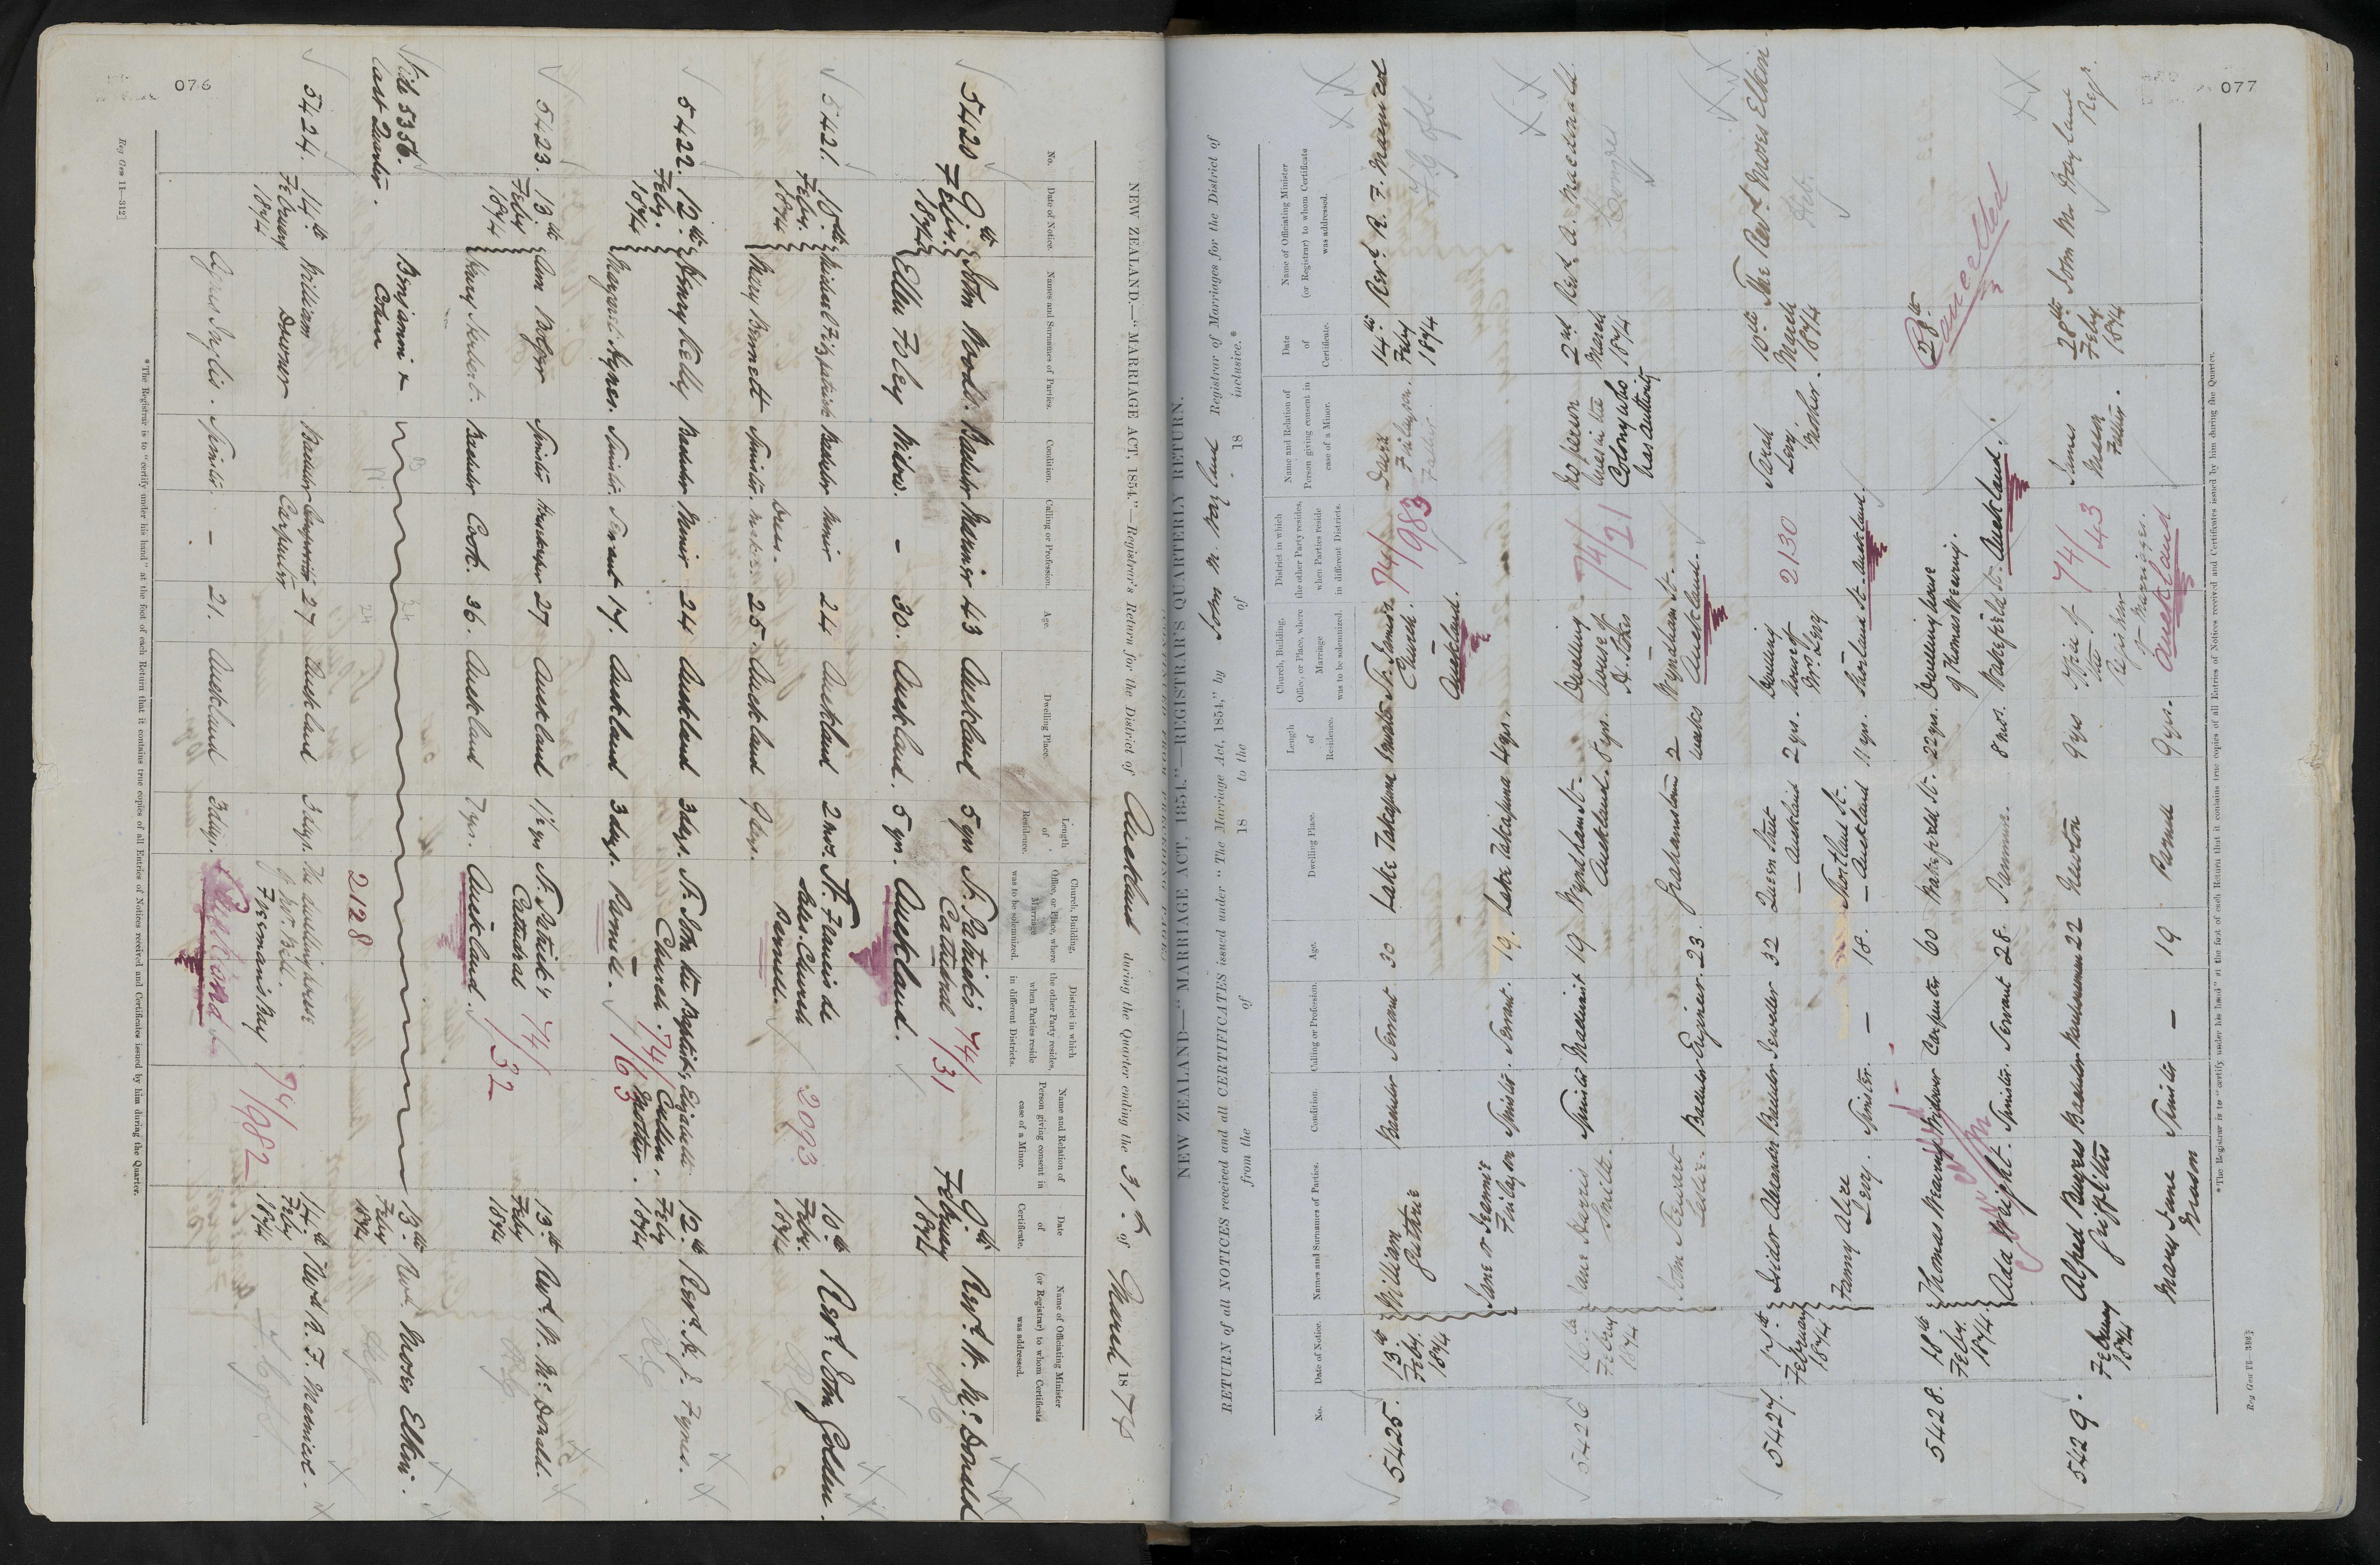 076
NEW ZEALAND.—"MARRIAGE ACT, 1854."—Registrar's Return for the District of Auckland during the Quarter ending the 31st of March 1874
No.
Date of Notice.
Names and Surnames of Parties.
Condition.
Calling or Profession.
Age.
Dwelling Place.
Length of Residence.
Church, Building, Office, or Place, where Marriage was to be solemnized.
District in which the other Party resides, when Parties reside in different Districts.
Name and Relation of Person giving consent in case of a Minor.
Date of Certificate.
Name of Officiating Minister (or Registrar) to whom Certificate was addressed.
5420 9th Feby. 1874 John Bachelor 43 Auckland 5 yrs St. Patrick's Cathedral 74/31 9th February 1874 Revd. W. McDonald
Ellen Foley Widow. - 30. Auckland. 5 yrs. Auckland.
5421. 10th Feby. 1874 Michael Fitzpatrick Bachelor Miner 24 Auckland 2 mos. St. Francis de Sales Church Parnell. 2093 10th Feby. 1874 Revd. John Golden.
Mary Bennett Spinster. Dress maker. 25. Auckland 9 days.
5422. 12th Feby. 1874 Henry Kelly Bachelor Miner 24 Auckland 3 days. St. John the Baptist's Church. Parnell. 74/63 Elizabeth Cullen. Mother. 12th Feby. 1874 Revd. H. J. Fynes.
Margaret Hynes. Spinster. Servant 17. Auckland 3 days.
5423. 13th Feby 1874 Ann Bolger Spinster Housekeeper 27 Auckland 1½ yrs St. Patrick's Cathedral 74/32 13th Feby 1874 Revd. W. McDonald.
Henry Herbert. Bachelor Cook. 36. Auckland 7 yrs. Auckland.
Vide 5356. last Quarter. Benjamin Cohen 2128 13th Feby 1874 Revd. Moses Elkin.
5424. 14th February 1874 William Downer Bachelor Carpenter 27 Auckland 3 days. The dwelling house of Mr. Bell. Freeman's Bay 74/982 14th Feby 1874 Revd R. F. Macnicol.
Agnes Inglis. Spinster. - 21. Auckland 3 days. Auckland
* The Registrar is to "certify under his hand" at the foot of each Return that it contains true copies of all Entries of Notices received and Certificates issued by him during the Quarter.
Reg Gen 11—312]
077
NEW ZEALAND—"MARRIAGE ACT, 1854."—REGISTRAR'S QUARTERLY RETURN.
RETURN of all NOTICES received and all CERTIFICATES issued under "The Marriage Act, 1854," by John M. Hayland Registrar of Marriages for the District of
from the of 18 to the of 18 inclusive.*
No.
Date of Notice.
Names and Surnames of Parties.
Condition.
Calling or Profession.
Age.
Dwelling Place.
Length of Residence.
Church, Building, Office, or Place, where Marriage was to be solemnized.
District in which the other Party resides, when Parties reside in different Districts.
Name and Relation of Person giving consent in case of a Minor.
Date of Certificate.
Name of Officiating Minister (or Registrar) to whom Certificate was addressed.
5425. 13th Feby. 1874 William Guthrie Bachelor Servant 30 Lake Takapuna St. James's Church. Auckland. 74/983 Finlayson. Father. 14th Feby 1874 Revd. R. F. Macnicol
Jane or Jennie Finlayson Spinster. Servant. 19. Lake Takapuna 4 yrs.
5426 16th Feby 1874 Jane Harris Smith. Spinster Machinist 19 Wyndham St. Auckland. 8 yrs. Dwelling house of Wyndham St. Auckland. 74/21 No person lives in the Colony who has authority 2nd March 1874 Revd. A. Macdonald.
John Stewart Leslie. Bachelor Engineer. 23. Grahamstown 2 weeks
5427. 17th February 1874 Isidor Alexander Bachelor Jeweller 32 Queen Street Auckland 2 yrs. Dwelling house of Mrs. Levy Shortland St. Auckland. 2130 Sarah Levy. Mother. 10th March 1874 The Revd. Moses Elkin
Fanny Alice Levy. Spinster. — 18. Shortland St. Auckland 11 yrs.
5428. 18th Feby. 1874. Thomas Wearing Widower Carpenter 60 Wakefield St. 22 yrs. Dwelling house of Thomas Wearing. Wakefield St. Auckland. 28th Cancelled
Ada Wright. Spinster. Servant 28. Panmure. 8 mos.
5429. February 1874 Alfred Burgess Griffiths Bachelor Warehouseman 22 Newton 9 yrs Office of the Registrar of Marriages. Auckland 74/43 James Father. 28th Feby. 1874 John M. Hayland Regr.
Mary Jane Spinster — 19 Parnell 9 yrs.
* The Registrar is to "certify under his hand" at the foot of each Return that it contains true copies of all Entries of Notices received and Certificates issued by him during the Quarter.